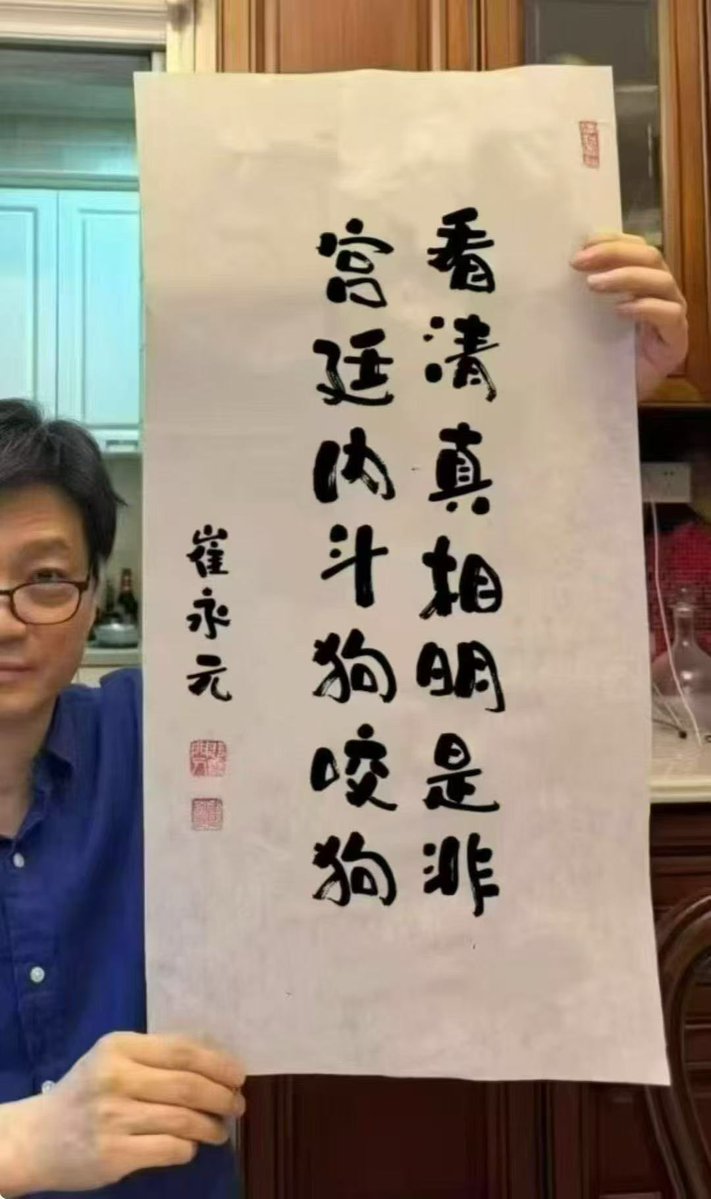 看清真相明是非
宫廷内斗狗咬狗
崔永元